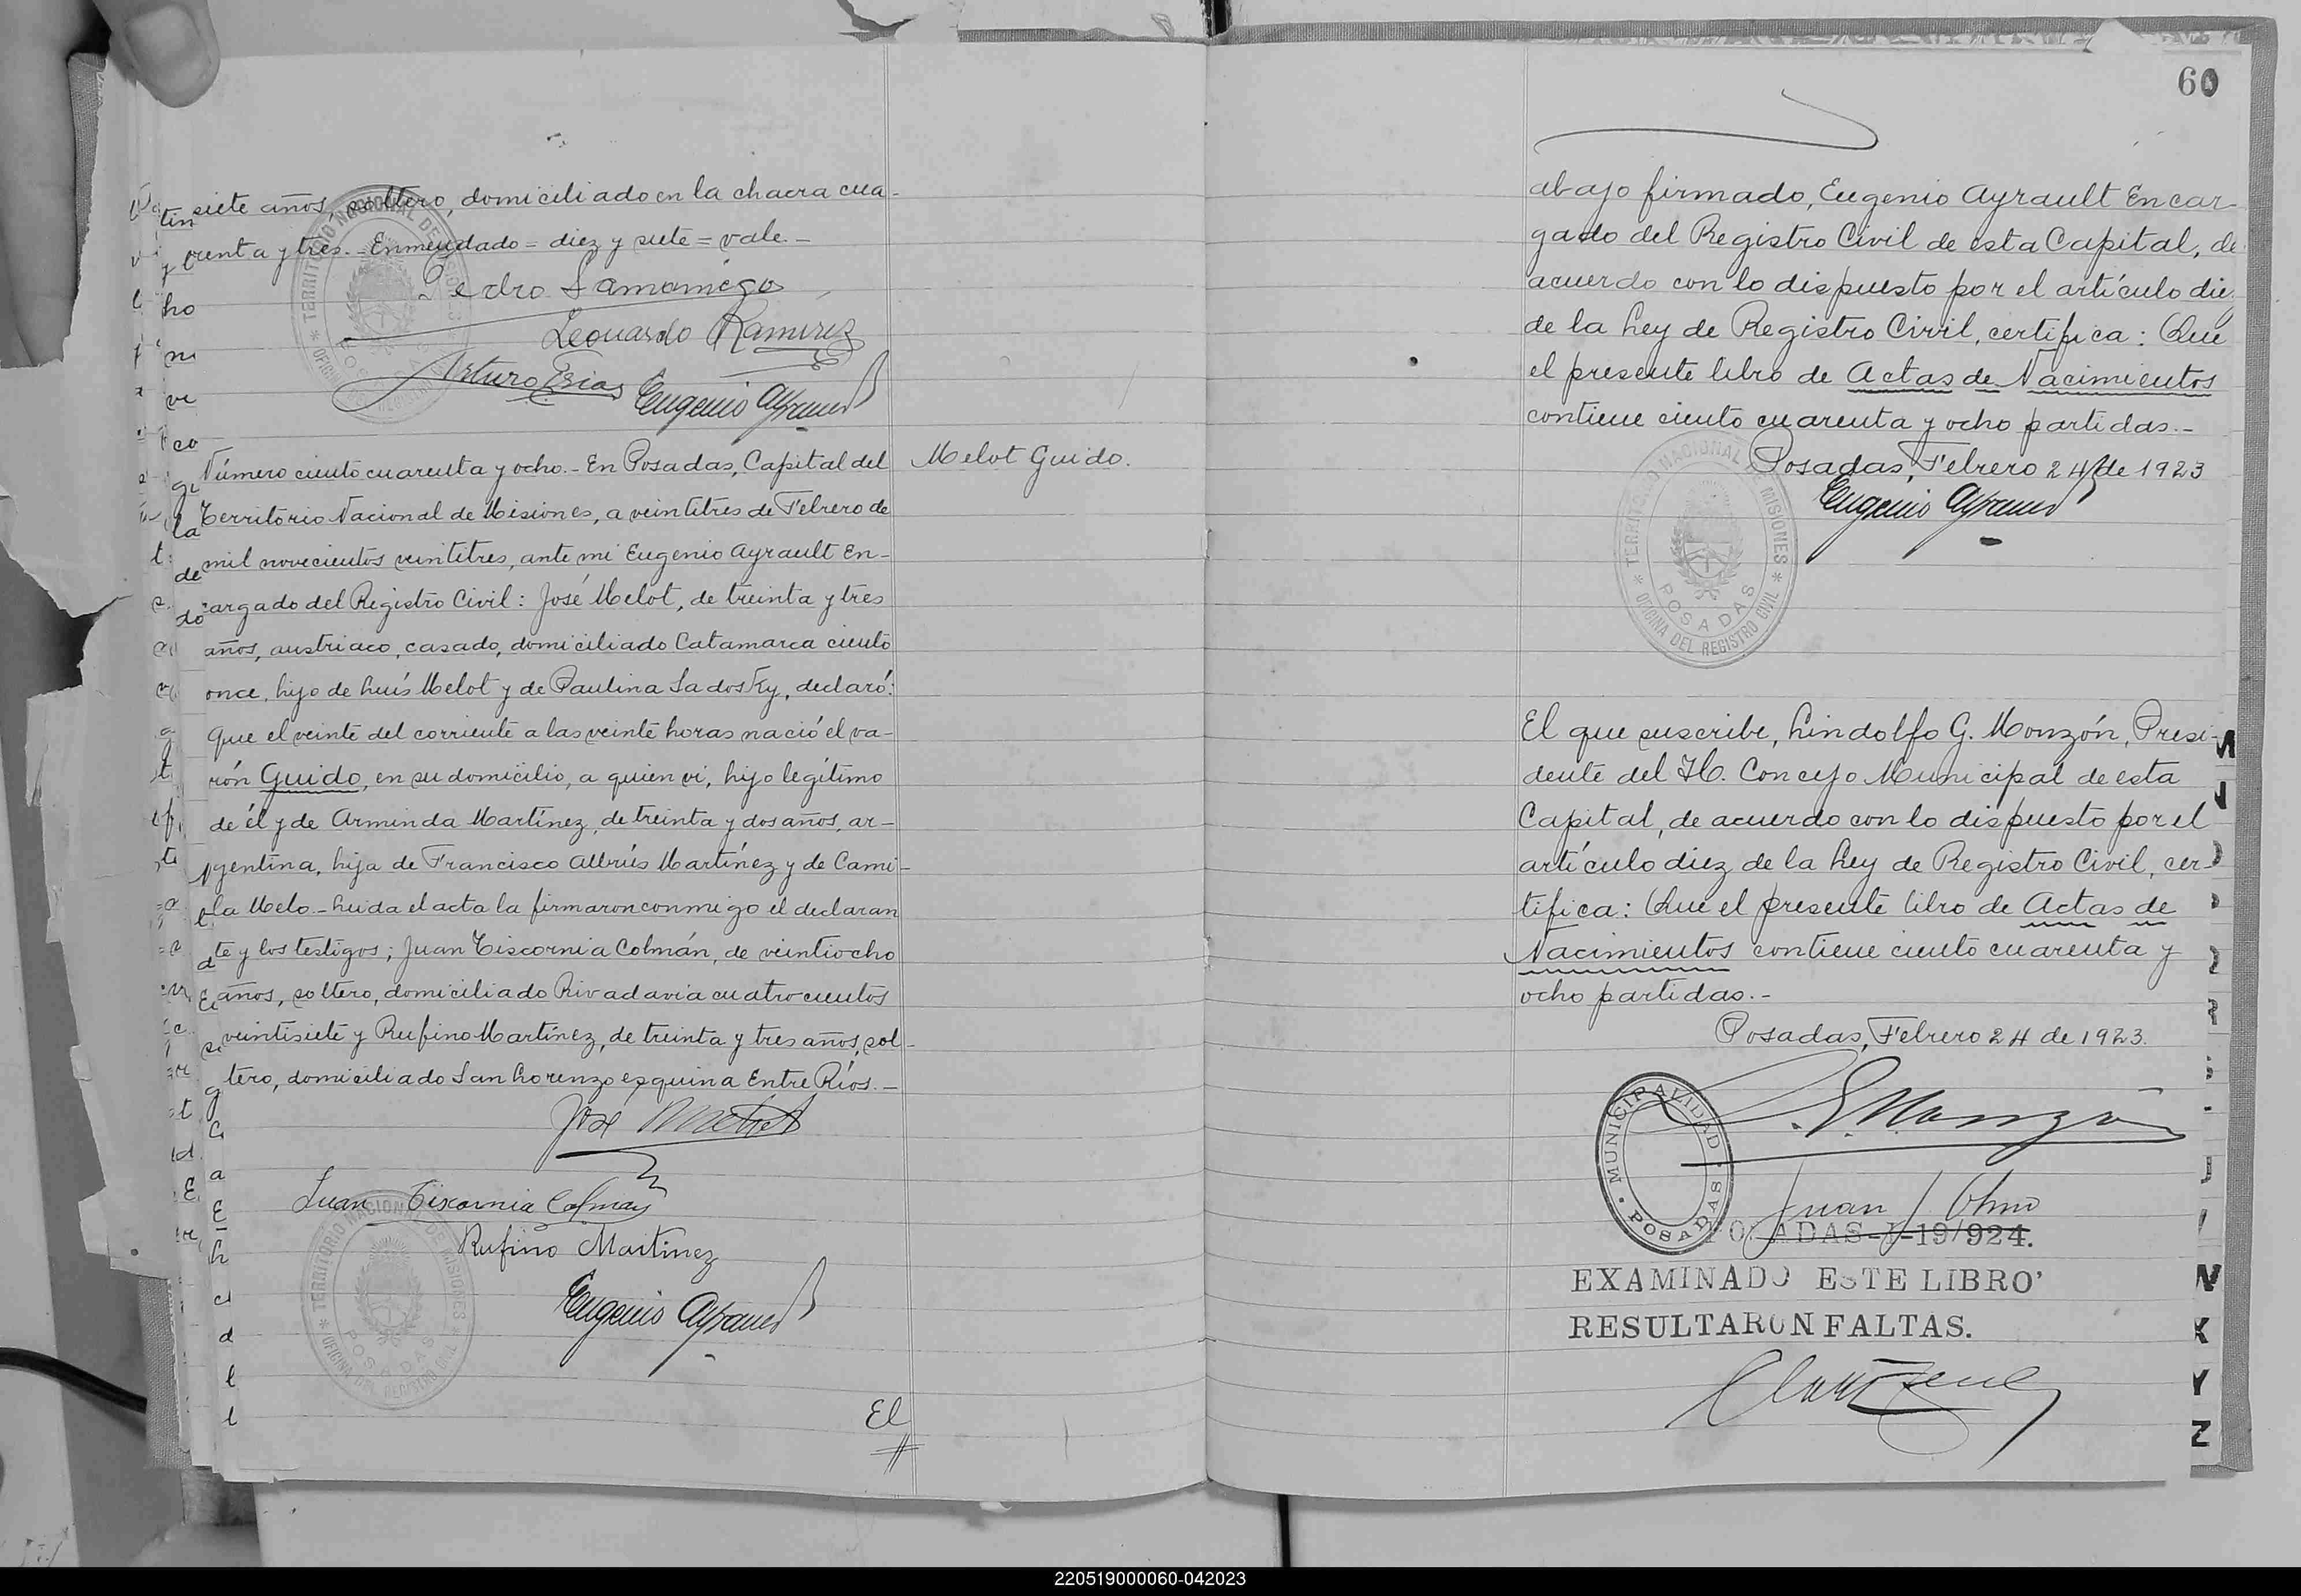 siete años, soltero, domiciliado en la chacra cua-
renta y tres.- Enmendado = diez y siete = vale.-
Pedro Samaniego
Leonardo Ramirez
Arturo Frias Eugenio Ayrault
Número ciento cuarenta y ocho.- En Posadas, Capital del
Melot Guido.
Territorio Nacional de Misiones, a veintitres de Febrero de
mil novecientos veintitres, ante mi Eugenio Ayrault En-
cargado del Registro Civil: José Melot, de treinta y tres
años, austriaco, casado, domiciliado Catamarca ciento
once, hijo de Luís Melot y de Paulina Sadosky, declaró:
Que el veinte del corriente a las veinte horas nació el va-
rón Guido, en su domicilio, a quien vi, hijo legítimo
de él y de Arminda Martínez, de treinta y dos años, ar-
gentina, hija de Francisco Martínez y de Cami-
la Melo.- Leida el acta la firmaron conmigo el declaran
te y los testigos; Juan Tiscornia Colmán, de veintiocho
años, soltero, domiciliado Rivadavia cuatrocientos
veintisiete y Rufino Martínez, de treinta y tres años, sol-
tero, domiciliado San Lorenzo esquina Entre Ríos.-
José Melot
Juan Tiscornia Colman
Rufino Martinez
Eugenio Ayrault
El
TERRITORIO NACIONAL DE MISIONES
OFICINA DEL REGISTRO CIVIL
POSADAS
60
abajo firmado, Eugenio Ayrault Encar-
gado del Registro Civil de esta Capital, de
acuerdo con lo dispuesto por el artículo diez
de la Ley de Registro Civil, certifica: Que
el presente libro de Actas de Nacimientos
contiene ciento cuarenta y ocho partidas.-
Posadas, Febrero 24 de 1923
Eugenio Ayrault
TERRITORIO NACIONAL DE MISIONES
OFICINA DEL REGISTRO CIVIL
POSADAS
El que suscribe, Lindolfo G. Monzón, Presi-
dente del H. Concejo Municipal de esta
Capital, de acuerdo con lo dispuesto por el
artículo diez de la Ley de Registro Civil, cer-
tifica: Que el presente libro de Actas de
Nacimientos contiene ciento cuarenta y
ocho partidas.-
Posadas, Febrero 24 de 1923.
L. G. Monzón
MUNICIPALIDAD POSADAS
Juan J.
19/924.
EXAMINADO ESTE LIBRO
RESULTARON FALTAS.
N
K
Y
Z
220519000060-042023